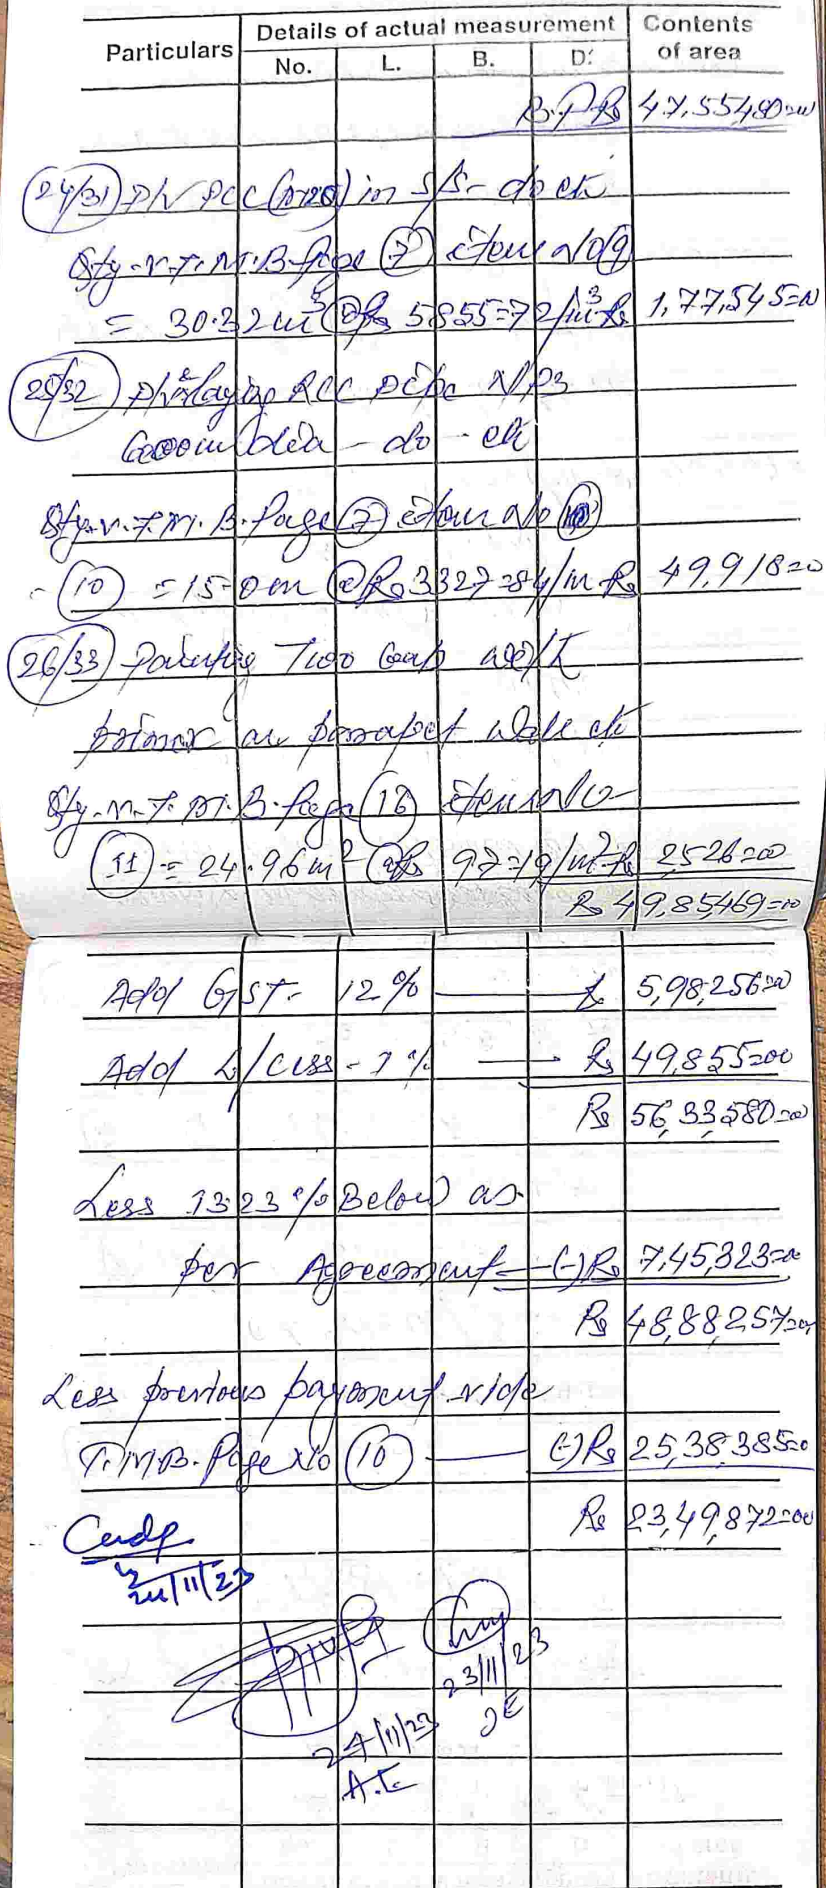 Particulars Details of actual measurement Contents of area
No. L. B. D.
B.F. Rs 47,55,480=00
(24/31) P/V PCC (M20) in S/S - do etc
Qty. v. T.M.B. Page (7) item No (9)
= 30.32 m³ @ Rs 5855=72/m³ Rs 1,77,545=00
(25/32) P & laying RCC pipe NP3
dia - do - etc
Qty. v. T.M.B. Page (7) item No
(10) = 15.0 m @ Rs 3327=84/m Rs 49,918=00
(26/33) Painting Two Coats
primer on parapet wall etc
Qty. v. T.M.B. Page (13) item No -
(11) = 24.96 m² @ Rs 97=19/m² Rs 2,526=00
Rs 49,85,469=00
Add GST - 12% Rs 5,98,256=00
Add L/Cess - 1% Rs 49,855=00
Rs 56,33,580=00
Less 13.23 % Below as
per Agreement (-) Rs 7,45,323=00
Rs 48,88,257=00
Less previous payment vide
T.M.B. Page No (10) (-) Rs 25,38,385=00
Rs 23,49,872=00
24/11/23
23/11/23
JE
24/11/23
A.E.